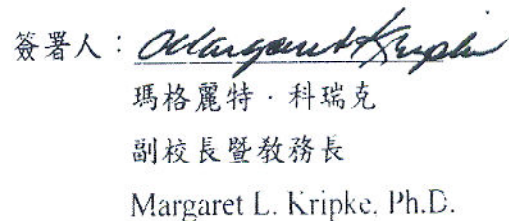 簽署人：Margaret Kripke
瑪格麗特．科瑞克
副校長暨教務長
Margaret L. Kripke, Ph.D.